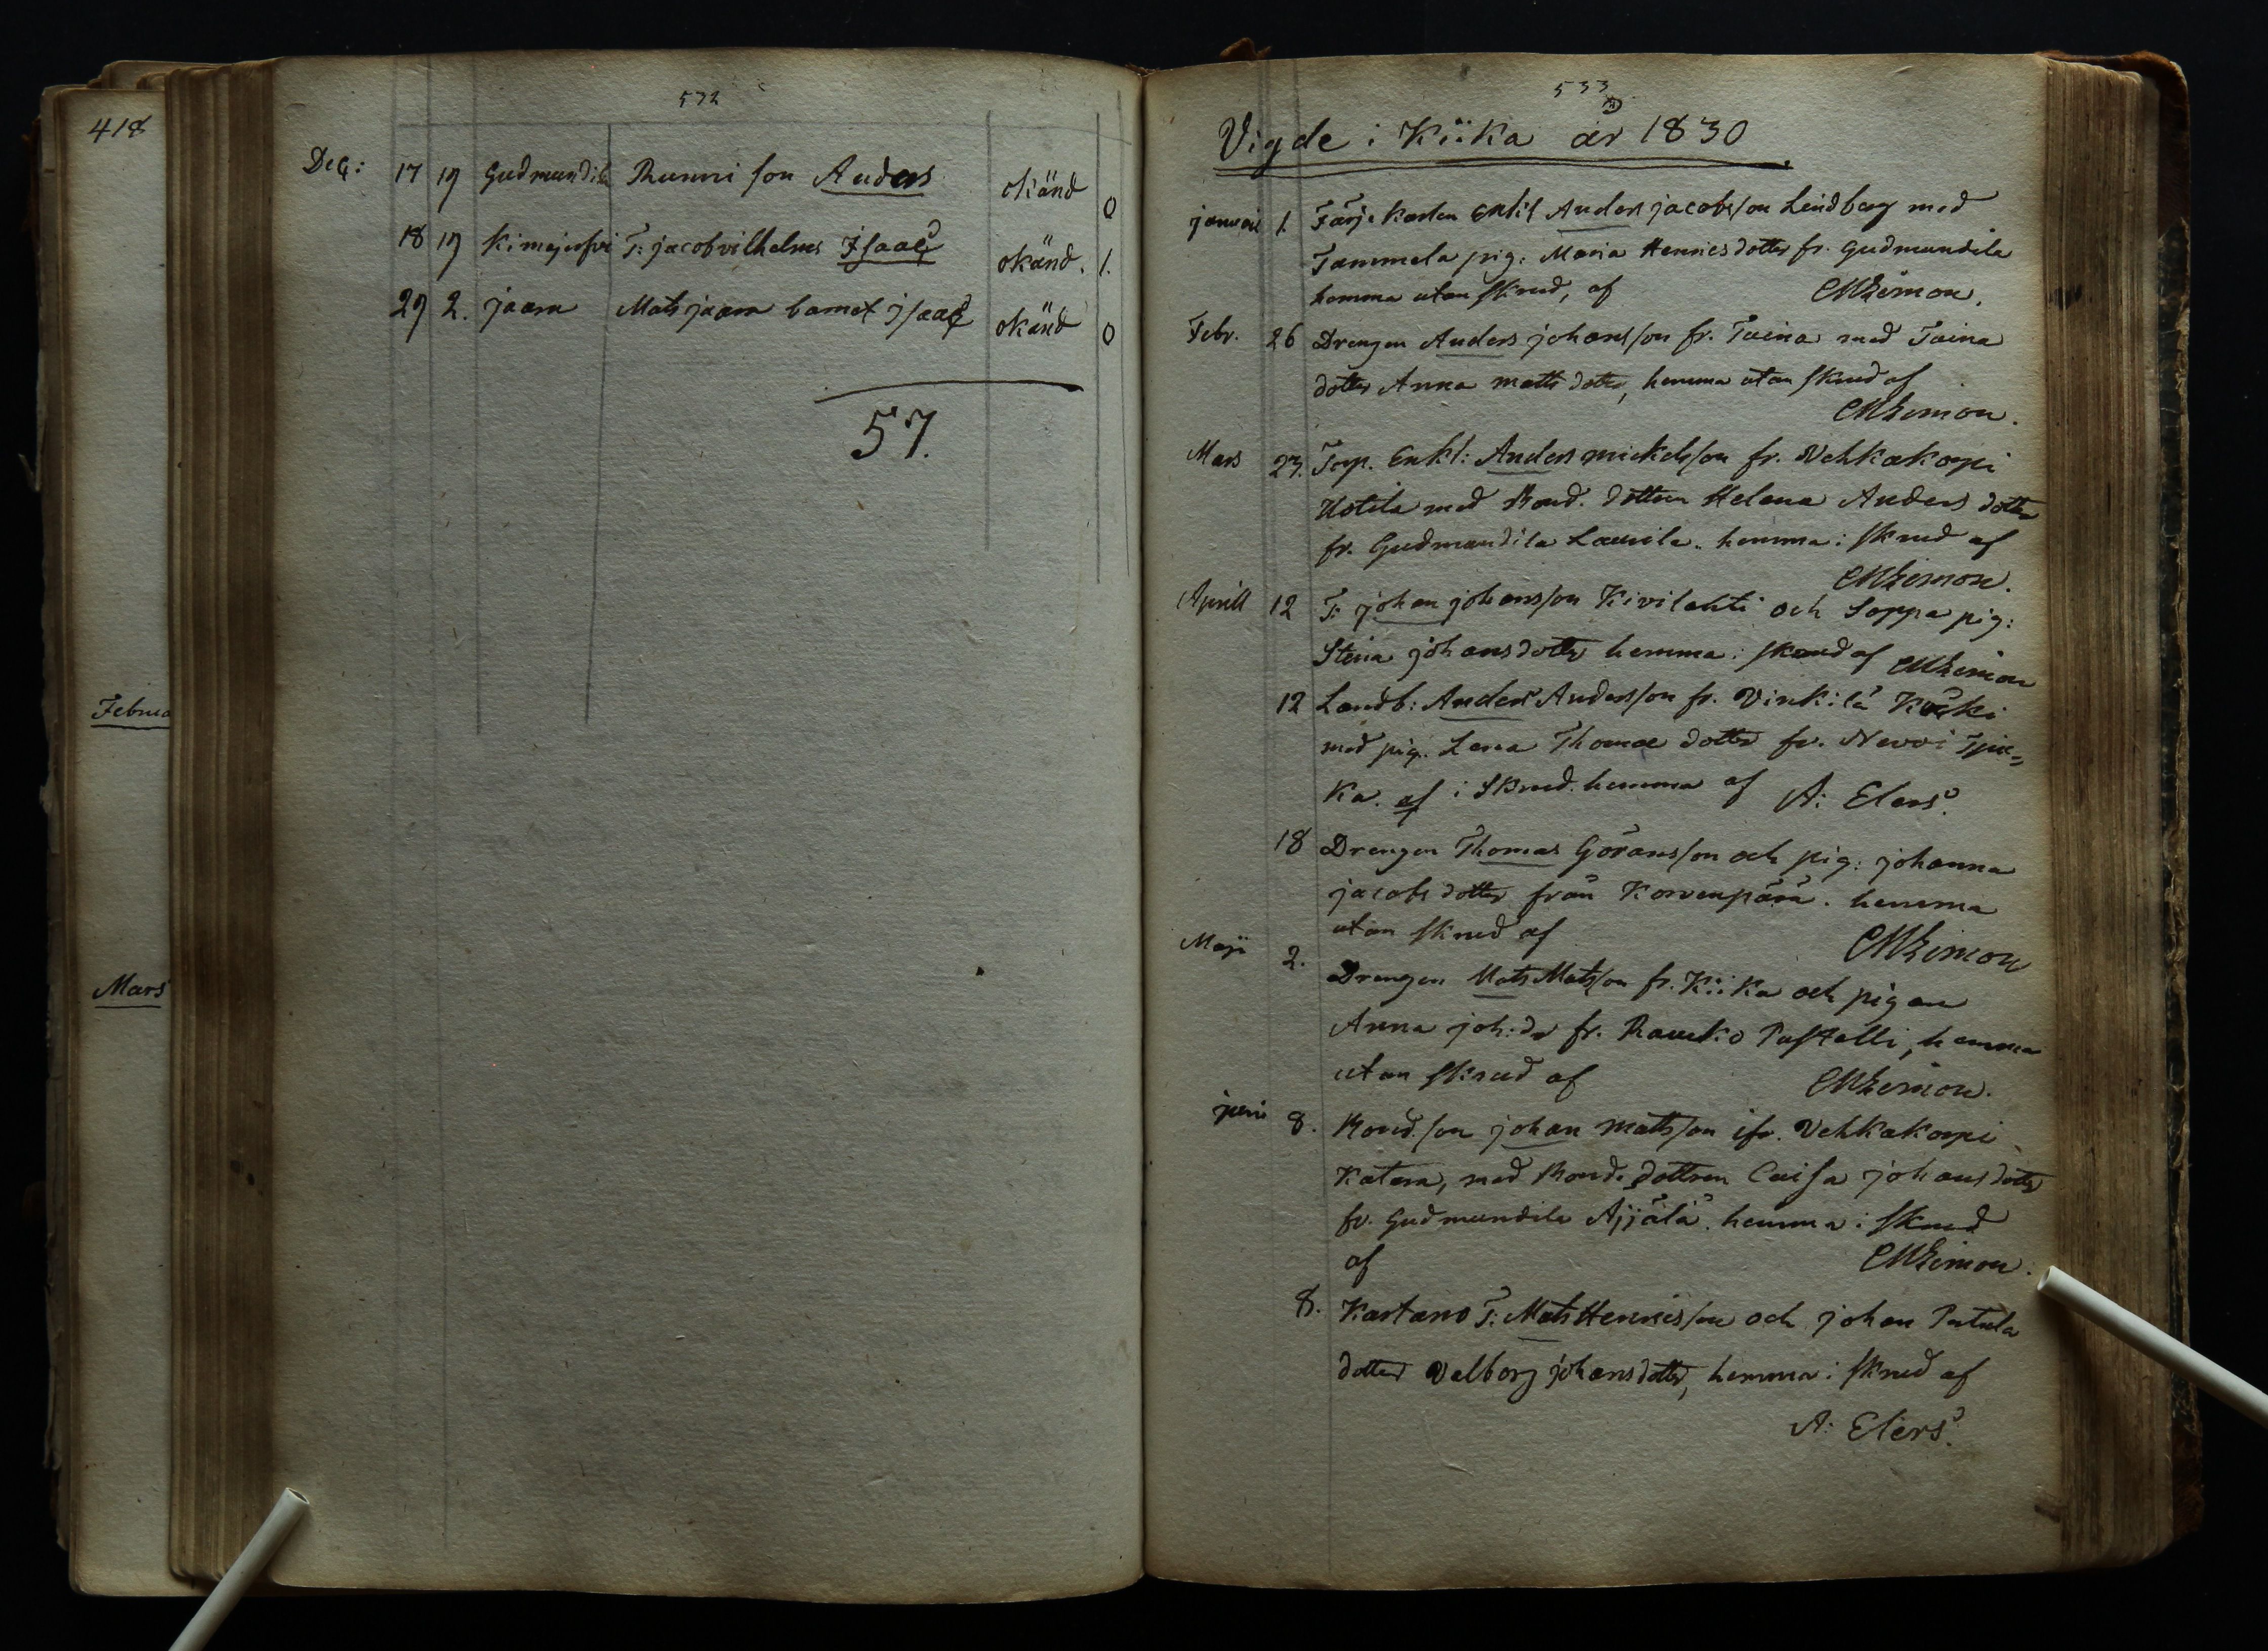 418
Februa
Mars
532
Dec: 17 19 Gudmundila Runni son Anders okänd 0
18 19 Kimajerfvi T: jacob vilhelms Isaac okänd. 1.
29 2. jaara Mats jaara barnet jsaac okänd 0
57.
533
Vigde i Kiika år 1830
januari 1. Färje karlen Enkl. Anders jacobsson Lindberg med
Tammela pig: Maria Henricsdotter fr. Gudmundila
hemma utan skrud, af
Febr. 26 Drengen Anders johansson fr. Tuina med Tuina
dotter Anna matts dotter, hemma utan skrud af
Mars 23. Torp. Enkl: Anders mickelsson fr. Vehkakorpi
Uotila med Bond. dottren Helena Anders dotter
fr. Gudmundila Laurila. hemma i skrud af
Aprill 12 T: johan johansson Kivilahti och Soppa pig:
Stina johansdotter hemma i skrud af
12 Landb: Anders Andersson fr. Vinkilä Koski
med pig. Lena Thomae dotter fr. Novi
ka. af i Skrud. hemma af A: Elers.
18 Drengen Thomas Göransson och pig: johanna
jacobs dotter från Korvenpärä. hemma
utan skrud af
Maji 2. Drengen Mats Matsson fr. Kiika och pigan
Anna joh:dr fr. Rauko Pastelli, hemma
utan skrud af
juni 8. Bond. son johan mattsson ifr. Vehkakorpi
Katara, med Bond. dottren Caisa johansdotter
fr. Gudmundila Ajjälä. hemma i skrud
af
8. Kartano T: Mats Henricsson och johan Patula
dotter Valborg johansdotter, hemma i skrud af
A: Elers.